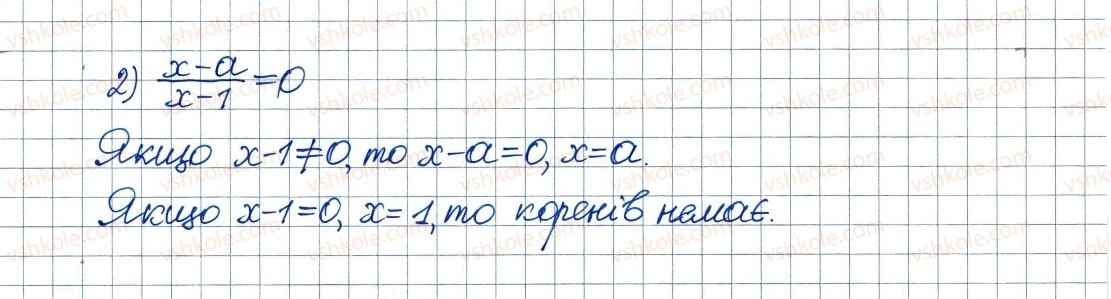 2) \frac{x-a}{x-1}=0
Якщо x-1≠0, то x-a=0, x=a.
Якщо x-1=0, x=1, то коренів немає.